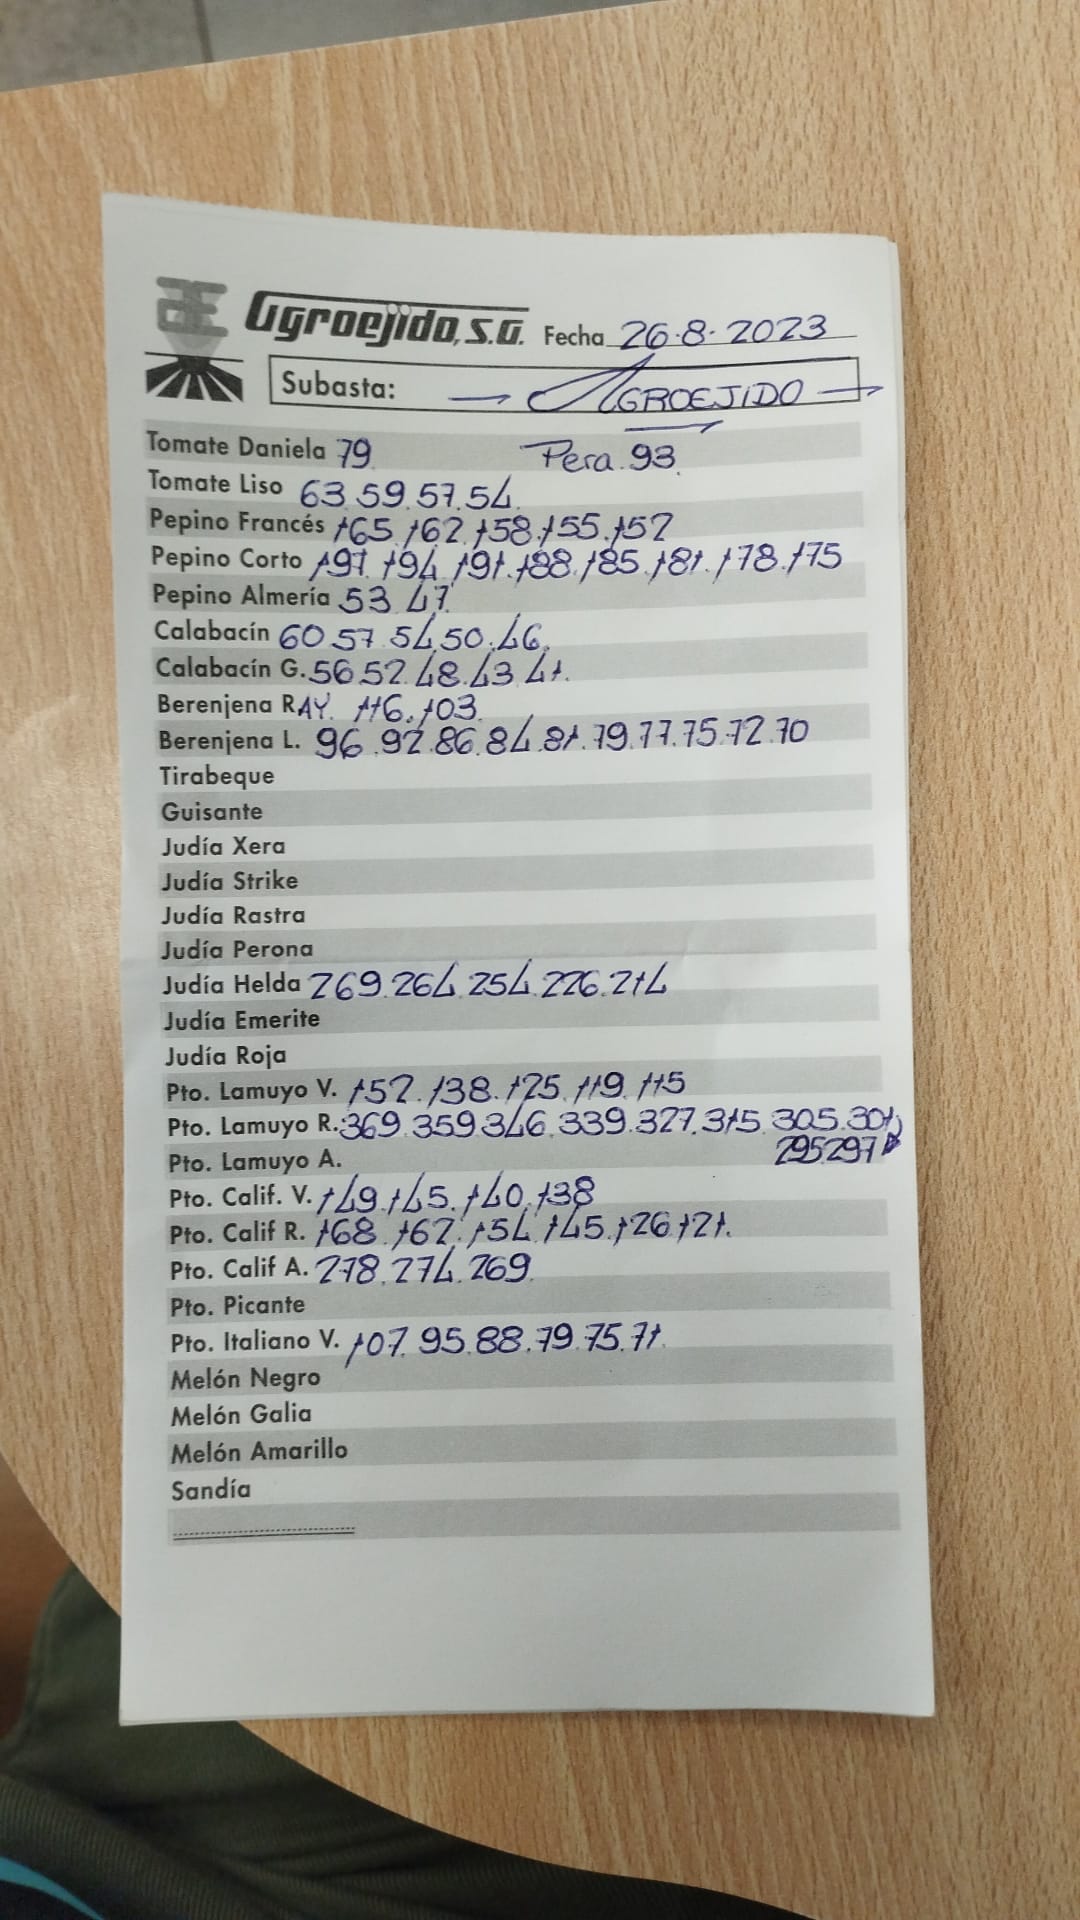 AE Agroejido, S.A. Fecha 26.8.2023
Subasta: AGROEJIDO
Tomate Daniela 79 Pera 93.
Tomate Liso 63.59.57.54.
Pepino Francés 165.162.158.155.152
Pepino Corto 197.194.191.188.185.181.178.175
Pepino Almería 53.47.
Calabacín 60.57.54.50.46.
Calabacín G. 56.52.48.43.41.
Berenjena RAY. 116.103.
Berenjena L. 96.92.86.84.81.79.77.75.72.70
Tirabeque
Guisante
Judía Xera
Judía Strike
Judía Rastra
Judía Perona
Judía Helda 269.264.254.226.214
Judía Emerite
Judía Roja
Pto. Lamuyo V. 152.138.125.119.115
Pto. Lamuyo R. 369.359.346.339.327.315.305.301
295.297
Pto. Lamuyo A.
Pto. Calif. V. 149.145.140.138
Pto. Calif R. 168.162.154.145.126.121.
Pto. Calif A. 278.274.269.
Pto. Picante
Pto. Italiano V. 107.95.88.79.75.71.
Melón Negro
Melón Galia
Melón Amarillo
Sandía